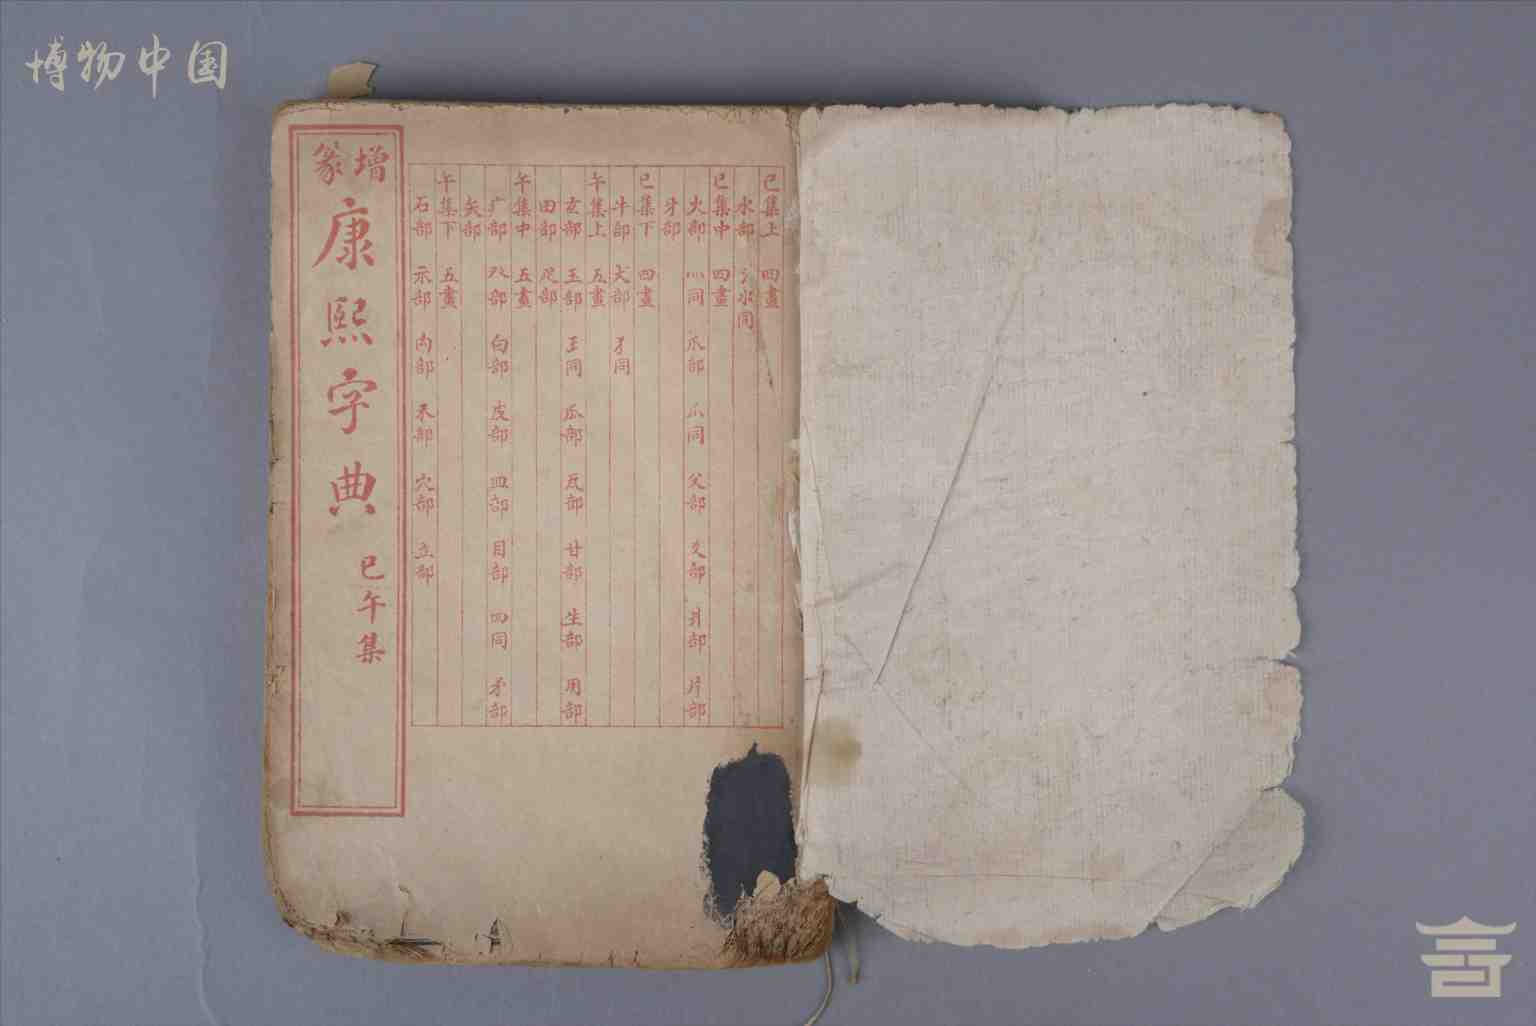 博物中国
巳集上 四畫
水部 氵氺同
巳集中 四畫
火部 灬同 爪部 爫同 父部 爻部 爿部 片部
牙部
巳集下 四畫
牛部 犬部 犭同
午集上 五畫
玄部 玉部 王同 瓜部 瓦部 甘部 生部 用部
田部 疋部
午集中 五畫
疒部 癶部 白部 皮部 皿部 目部 罒同 矛部
矢部
午集下 五畫
石部 示部 禸部 禾部 穴部 立部
增篆
康熙字典
巳午集